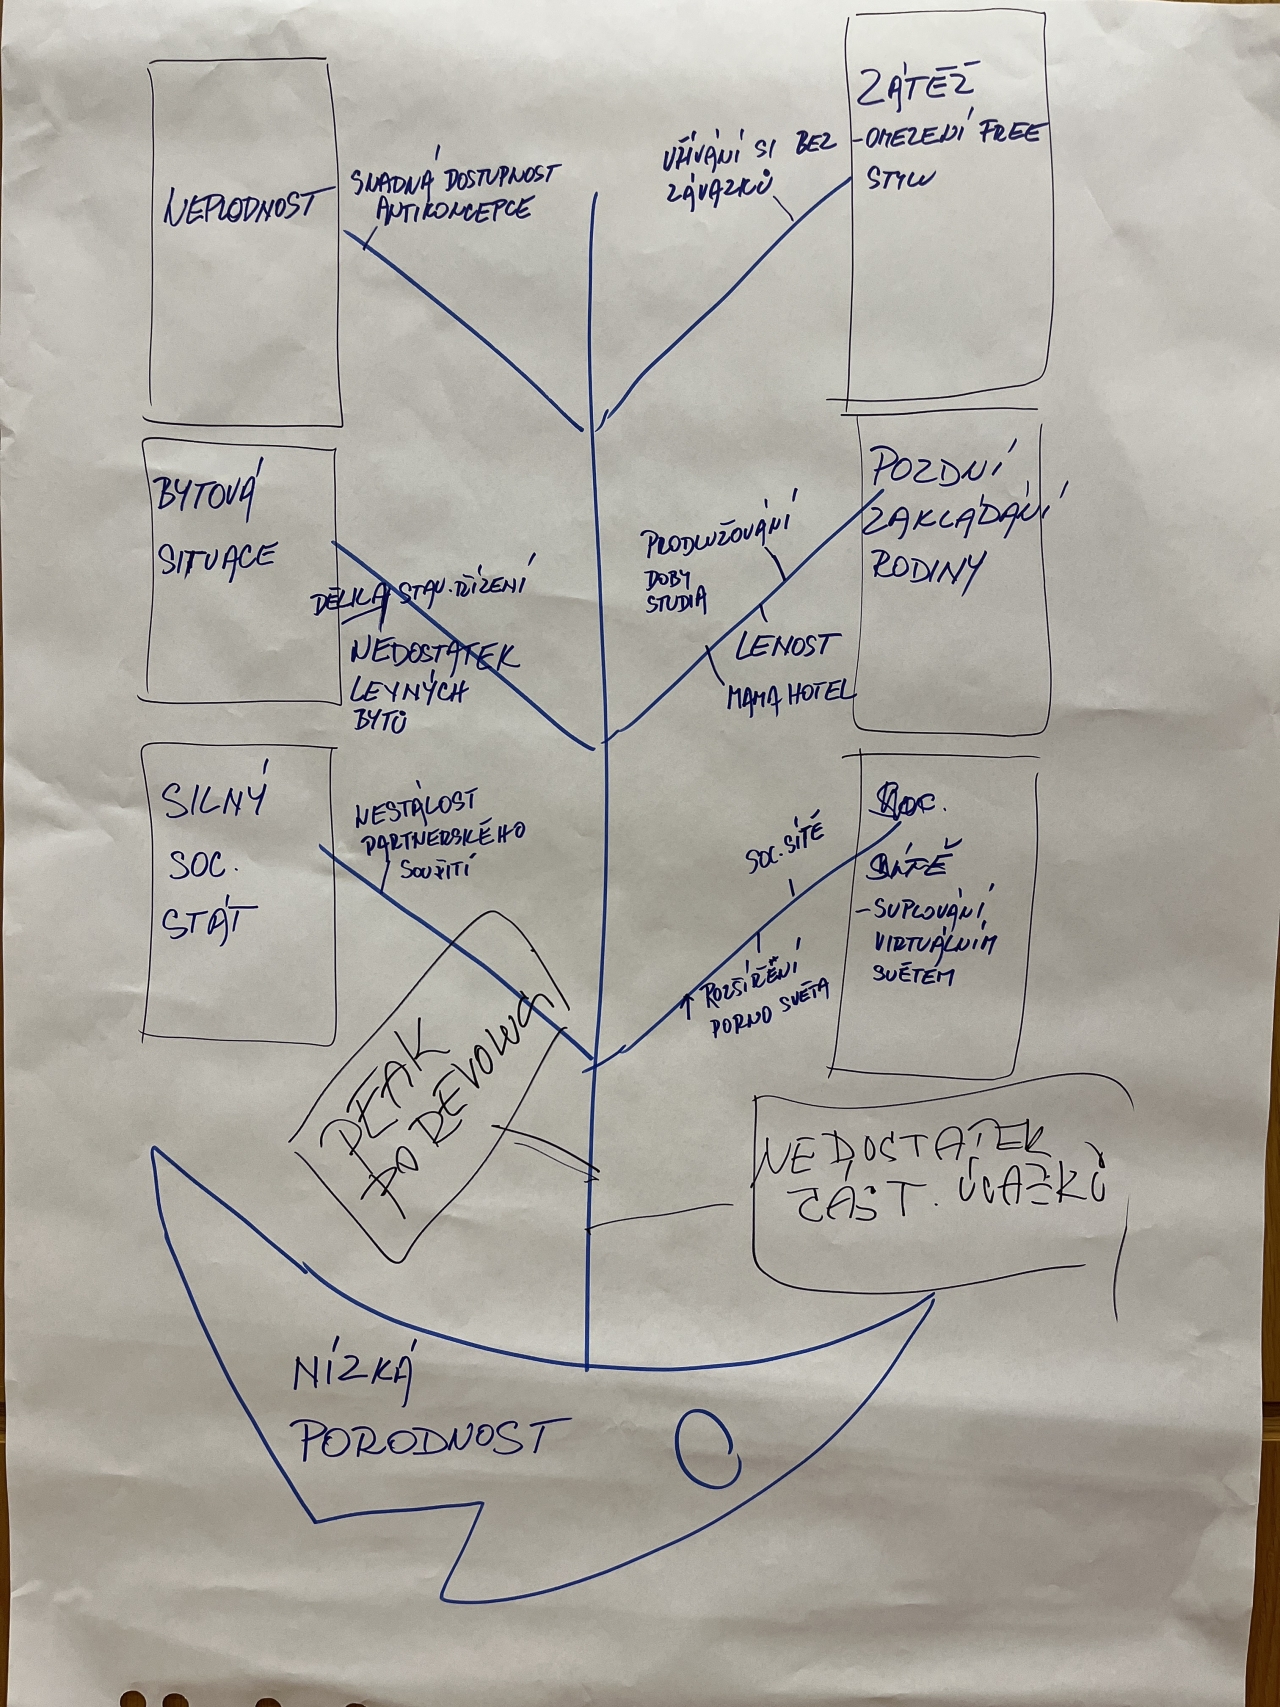 NEPLODNOST
SNADNÁ DOSTUPNOST
ANTIKONCEPCE
UŽÍVÁNÍ SI BEZ
ZÁVAZKŮ
ZÁTĚŽ
-OMEZENÍ FREE
STYLU
BYTOVÁ
SITUACE
DÉLKA STAV. ŘÍZENÍ
NEDOSTATEK
LEVNÝCH
BYTŮ
PRODLUŽOVÁNÍ
DOBY
STUDIA
LENOST
MAMA HOTEL
POZDNÍ
ZAKLÁDÁNÍ
RODINY
SILNÝ
SOC.
STÁT
NESTÁLOST
PARTNERSKÉHO
SOUŽITÍ
SOC. SÍTĚ
↑ ROZŠÍŘENÍ
PORNO SVĚTA
SOC.
SÍTĚ
-SUPLOVÁNÍ
VIRTUÁLNÍM
SVĚTEM
PEAK
PO REVOLUCI
NEDOSTATEK
ČÁST. ÚVAZKŮ
NÍZKÁ
PORODNOST